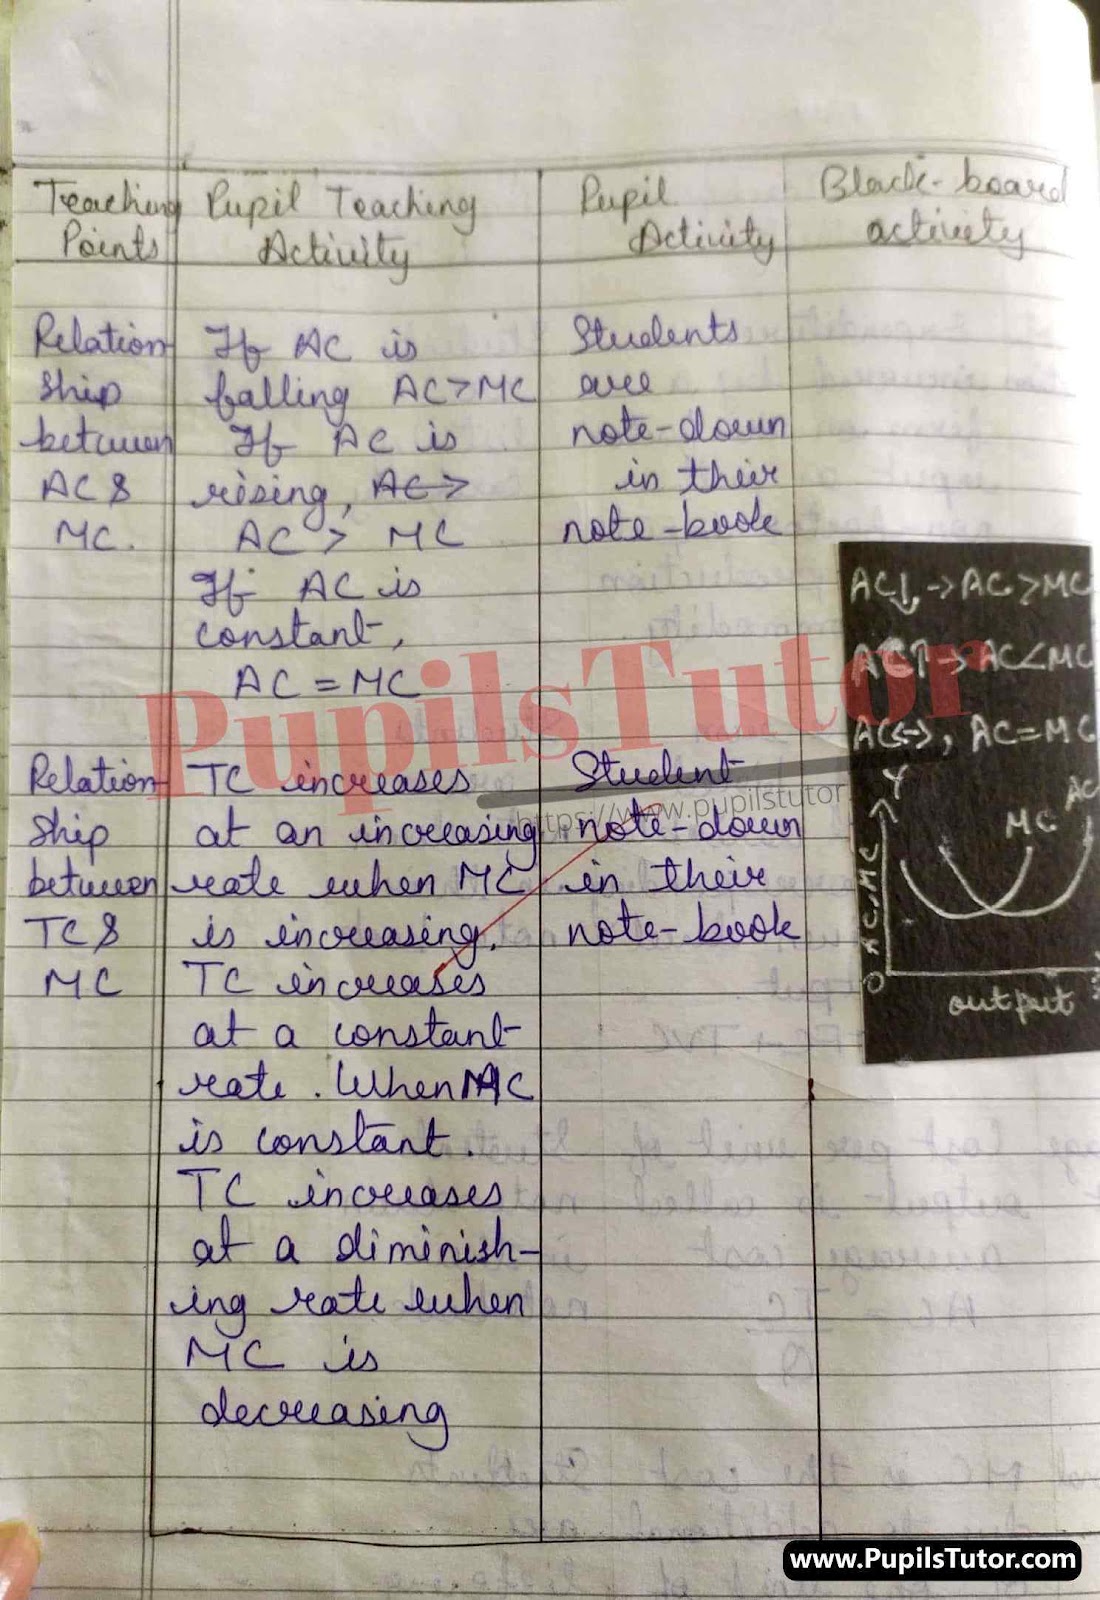 Teaching Points
Pupil Teaching Activity
Pupil Activity
Black-board activity
Relation
ship
between
AC &
MC.
If AC is
falling AC>MC
If AC is
rising, AC >
AC > MC
If AC is
constant,
AC = MC
Students
are
note-down
in their
note-book
AC↓ → AC>MC
AC↑ → AC<MC
AC↔, AC=MC
Y
AC
MC
AC, MC
O
output
Relation
ship
between
TC &
MC
TC increases
at an increasing
rate when MC
is increasing.
TC increases
at a constant
rate. When MC
is constant.
TC increases
at a diminish-
ing rate when
MC is
decreasing
Student
note-down
in their
note-book
PupilsTutor
https://www.pupilstutor
www.PupilsTutor.com